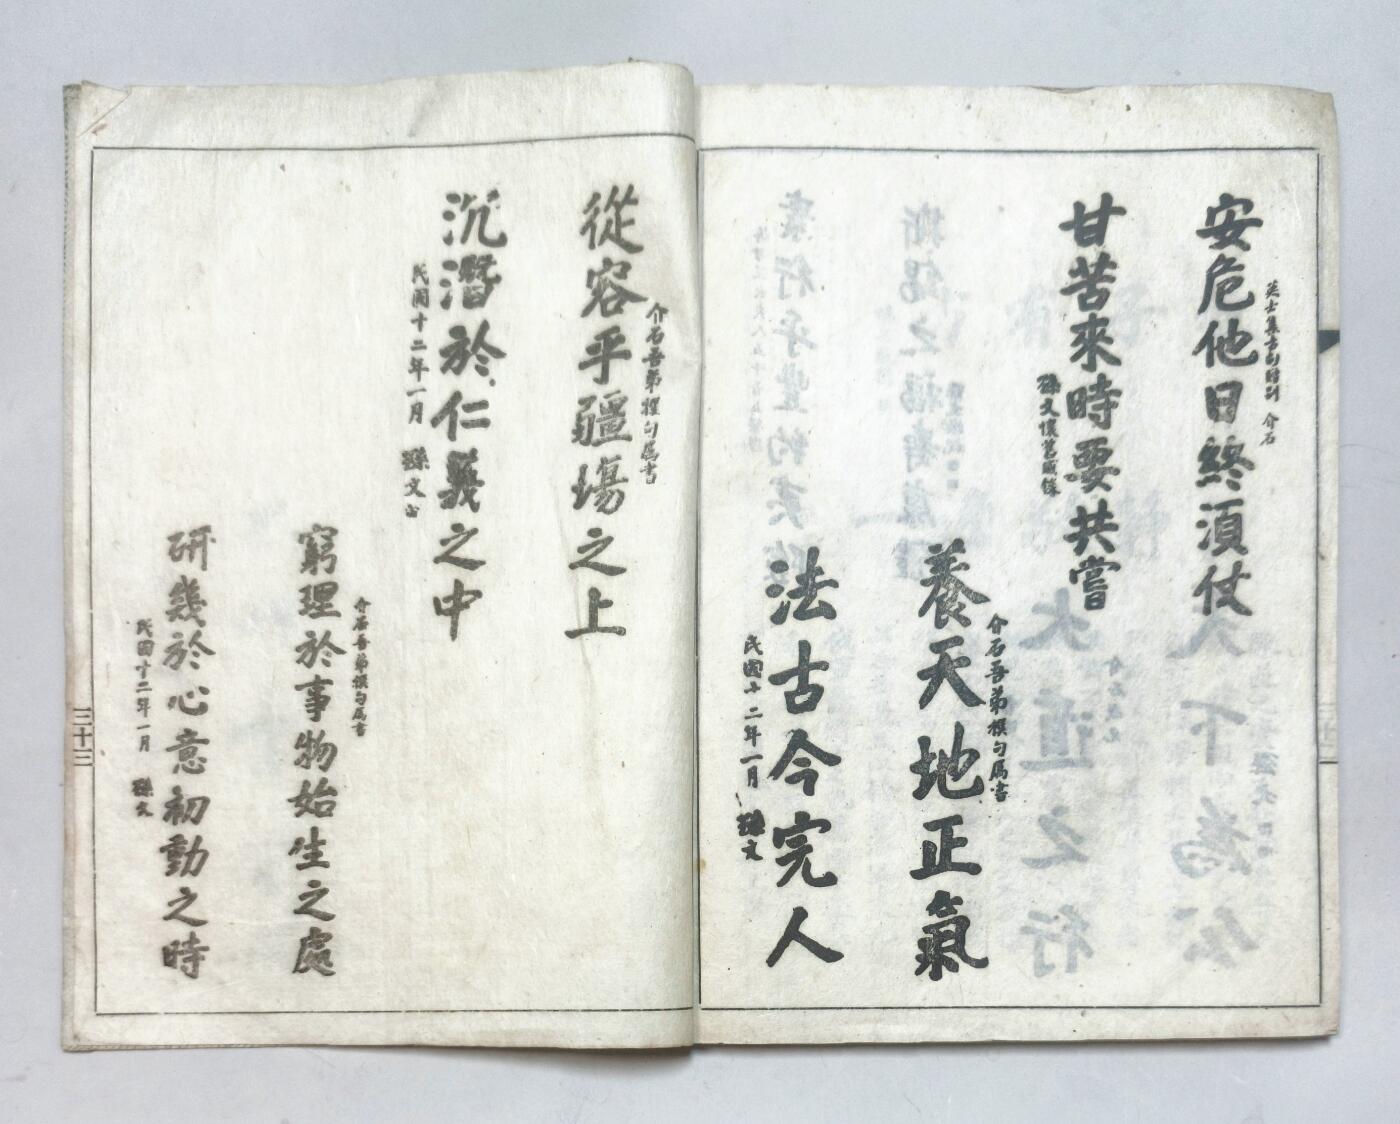 安危他日終須仗
英士集古句特別 介石
甘苦來時要共嘗
孫文懷舊感錄
養天地正氣
介石吾弟撰句屬書
法古今完人
民國十二年一月 孫文
從容乎疆場之上
介石吾弟撰句屬書
沉潛於仁義之中
民國十二年一月 孫文
窮理於事物始生之處
介石吾弟撰句屬書
研幾於心意初動之時
民國十二年一月 孫文
三十三